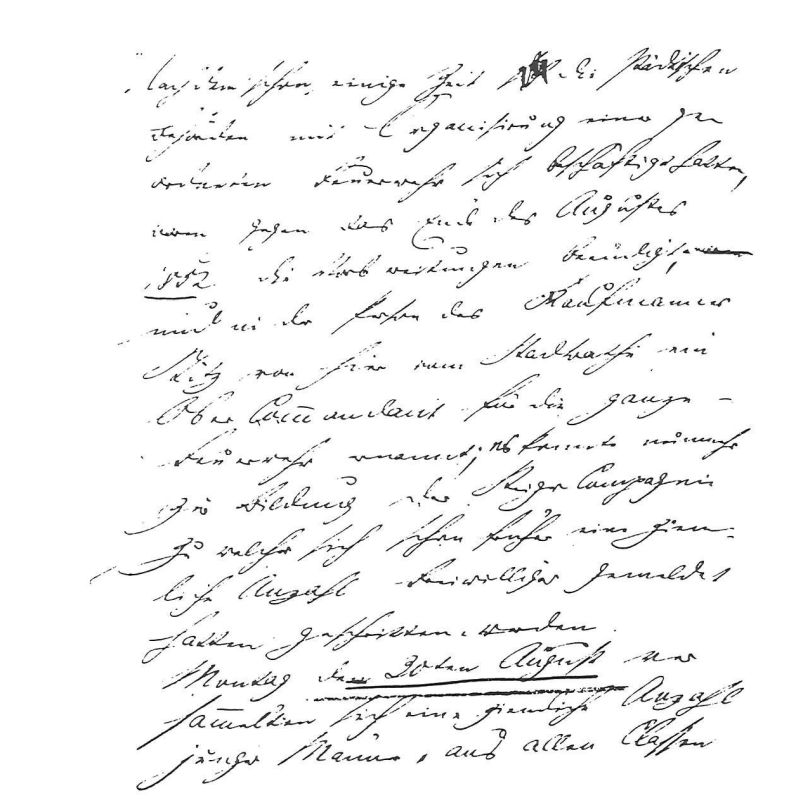 Nachdem schon einige Zeit die städtischen
Behörden mit Organisirung einer ge
ordneten Feuerwehr sich beschäftigt hatten,
waren gegen das Ende des Augustes
1852 die Vorbereitungen beendigt,
und in der Person des Kaufmanns
von hier vom Stadtrathe ein
Ober Commandant für die ganze
Feuerwehr ernannt; es konnte nunmehr
zur Bildung der Steiger Compagnie
zu welcher sich schon früher eine ziem-
liche Anzahl Freiwilliger gemeldet
hatten geschritten werden.
Montag den 30ten August ver
sammelten sich eine ziemliche Anzahl
junger Männer, aus allen Classen